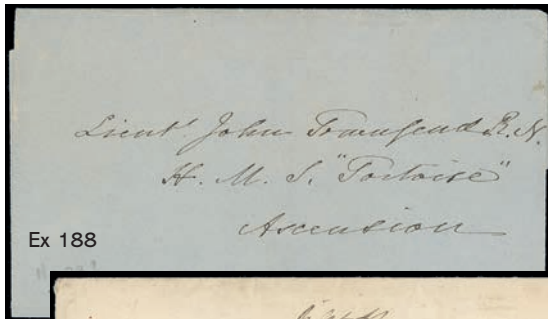 Lieut. John Townsend R.N.
H. M. S. "Tortoise"
Ascension
Ex 188